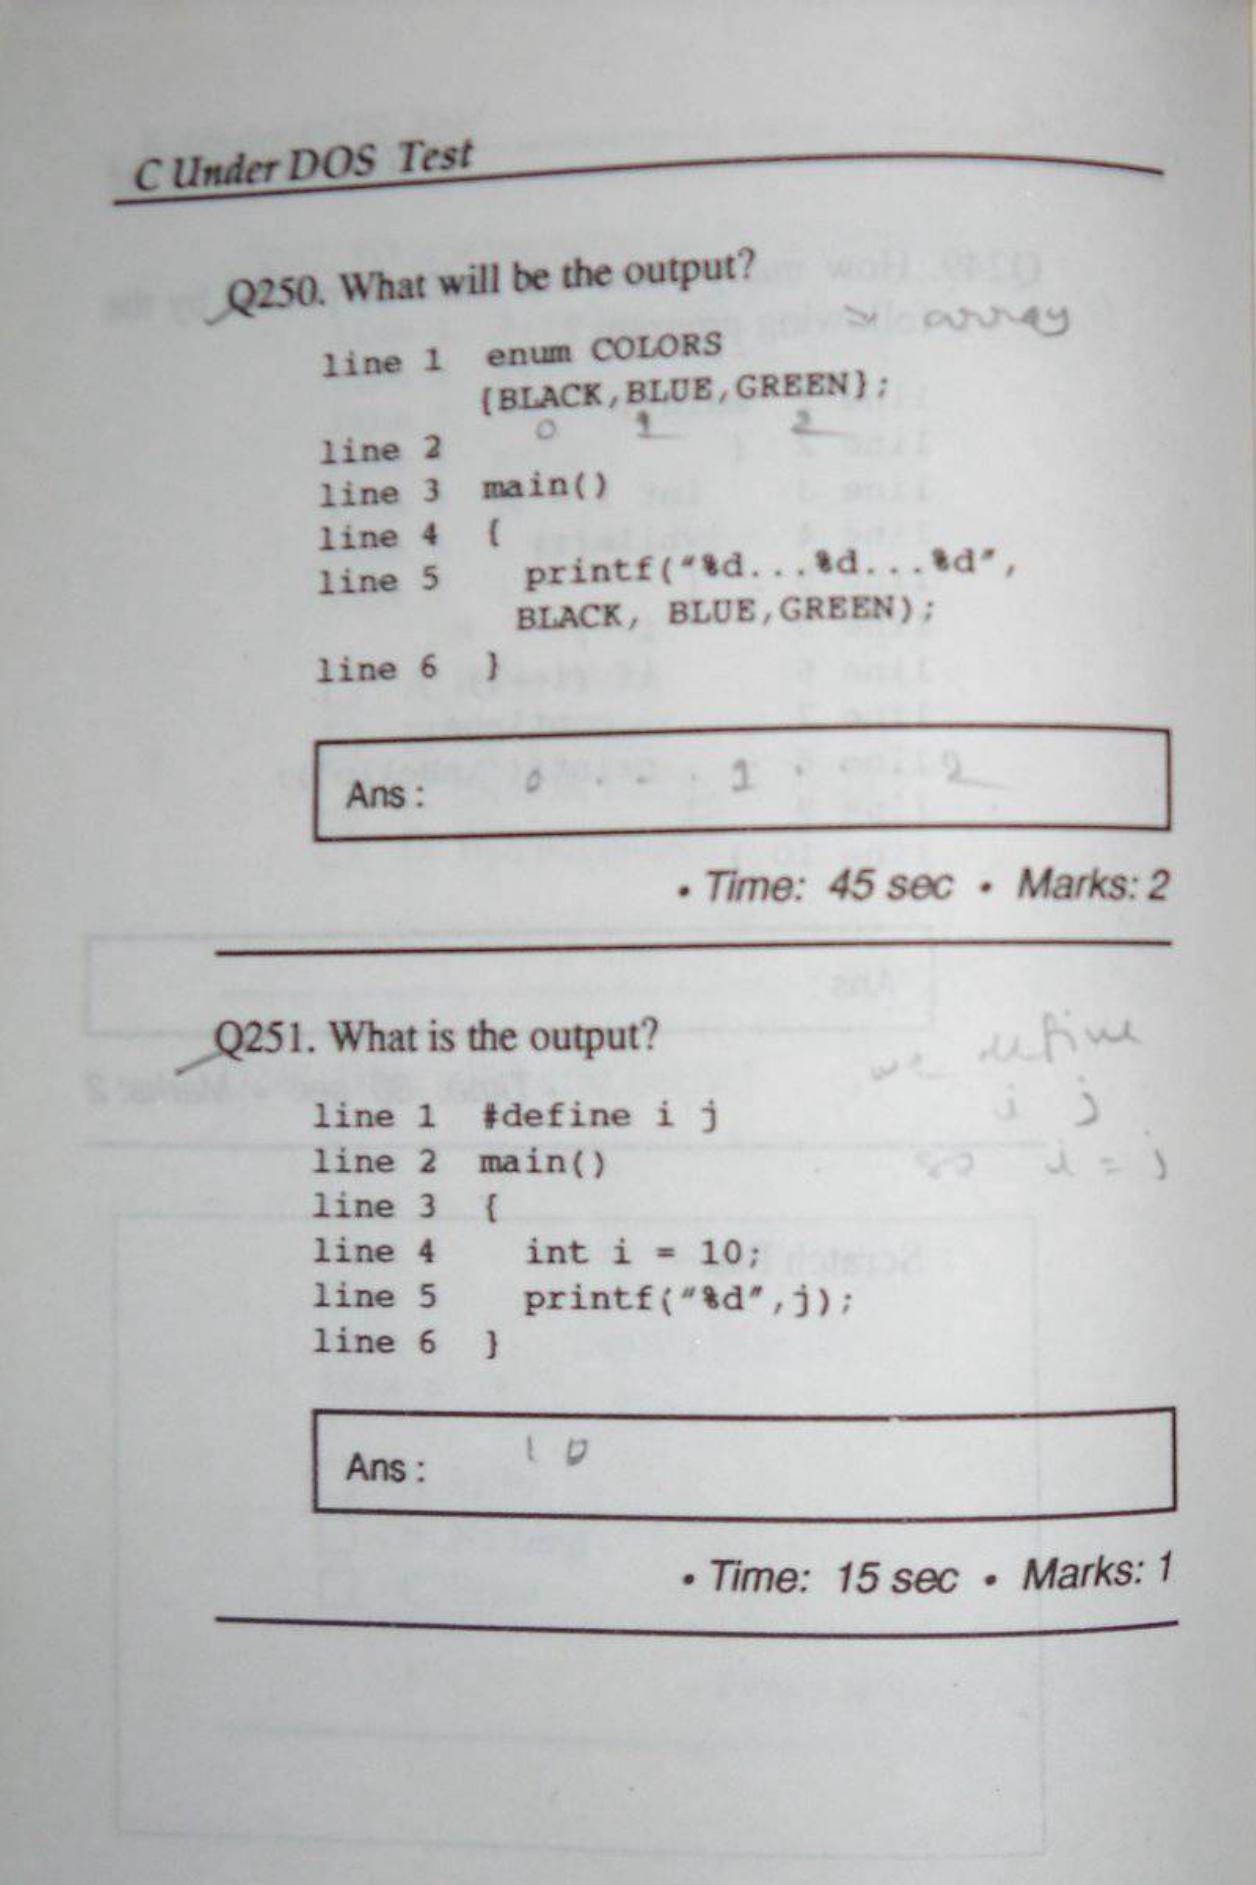 C Under DOS Test
Q250. What will be the output?
≃ array
line 1 enum COLORS
{BLACK,BLUE,GREEN};
0 1 2
line 2
line 3 main()
line 4 {
line 5 printf("%d...%d...%d",
BLACK, BLUE,GREEN);
line 6 }
Ans : 0 . . . 1 . 2
• Time: 45 sec • Marks: 2
Q251. What is the output?
we define
i j
so i = j
line 1 #define i j
line 2 main()
line 3 {
line 4 int i = 10;
line 5 printf("%d",j);
line 6 }
Ans : 10
• Time: 15 sec • Marks: 1